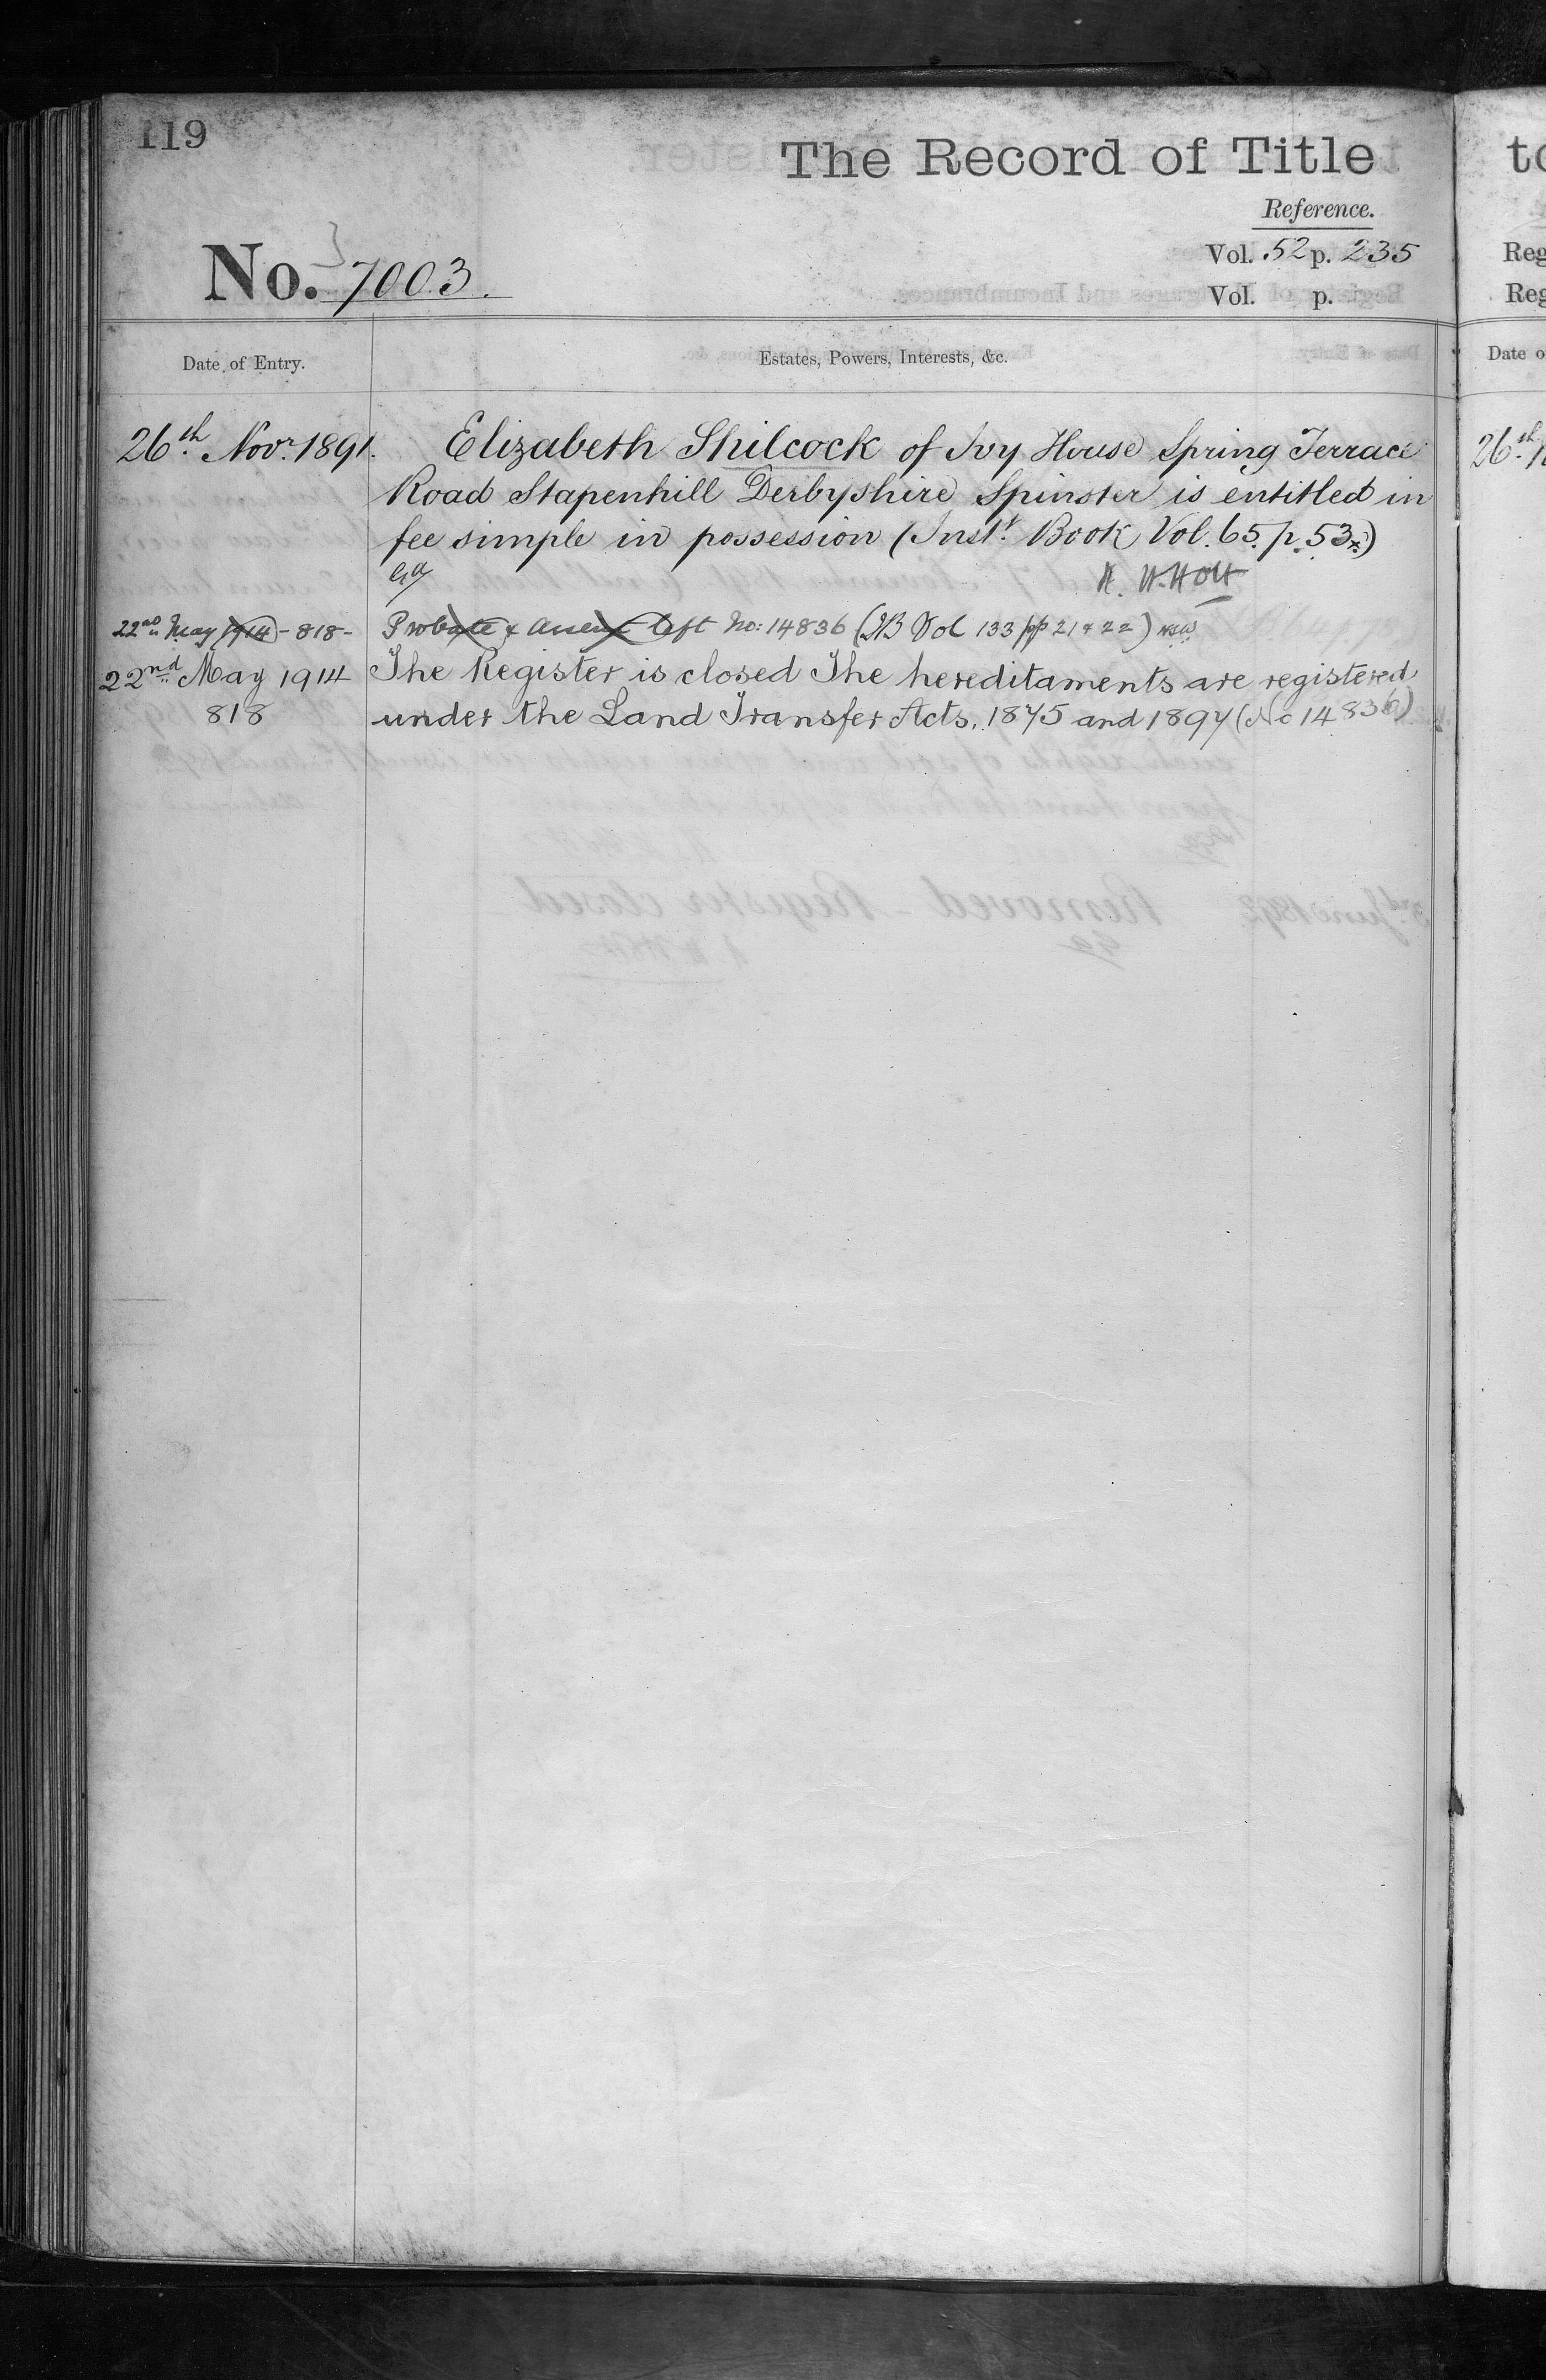 119
The Record of Title
Reference.
No. 7003.
Vol. 52 p. 235
Vol. p.
Date of Entry.
Estates, Powers, Interests, &c.
26th Novr. 1891. Elizabeth Shilcock of Ivy House Spring Terrace
Road Stapenhill Derbyshire Spinster is entitled in
fee simple in possession (Instt. Book Vol. 65. p. 53.)
H. W. Holt
22nd May 1914 - 818 - Probate & assent left No: 14836 (IB Vol 133 pp 21 & 22)
22nd May 1914 The Register is closed The hereditaments are registered
818 under the Land Transfer Acts, 1875 and 1897 (No 14836)
to
Reg
Reg
Date o
26th N